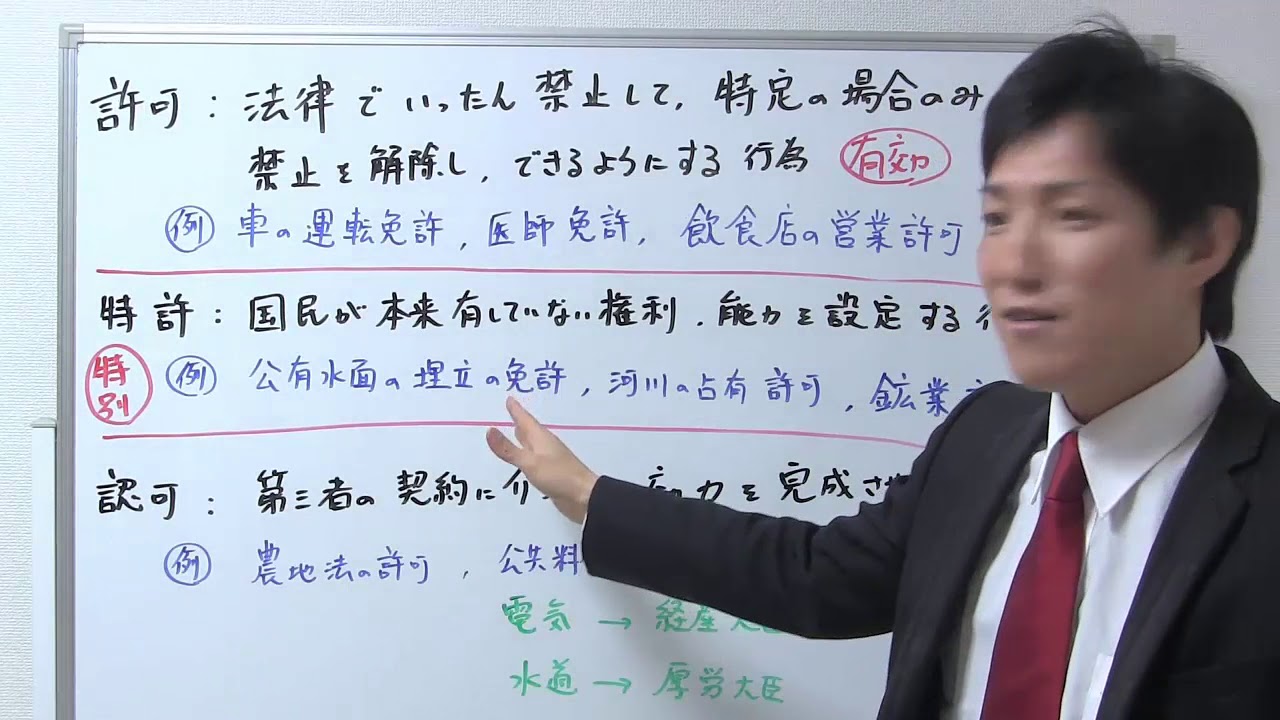 許可：法律でいったん禁止して，特定の場合のみ
禁止を解除し，できるようにする行為 有効
例 車の運転免許，医師免許，飲食店の営業許可
特許：国民が本来有していない権利．能力を設定する
特別 例 公有水面の埋立の免許，河川の占有許可，鉱業
認可：第三者の契約に介 力を完成さ
例 農地法の許可，公共料
電気→経産大臣
水道→厚労大臣